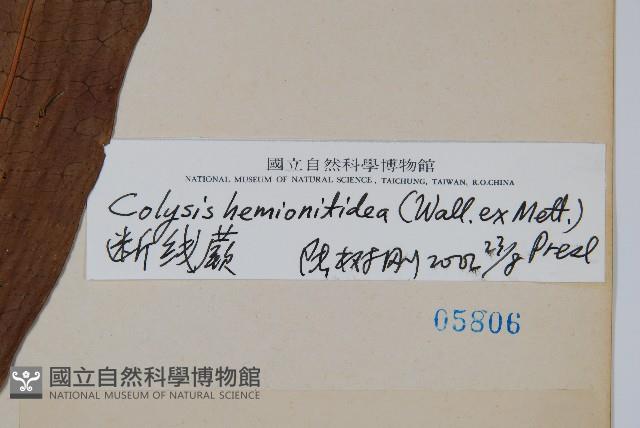 國立自然科學博物館
NATIONAL MUSEUM OF NATURAL SCIENCE, TAICHUNG, TAIWAN, R.O.CHINA
Colysis hemionitidea (Wall. ex Mett.)
断线蕨 陈树刚 2002 23/8 Presl
05806
國立自然科學博物館
NATIONAL MUSEUM OF NATURAL SCIENCE